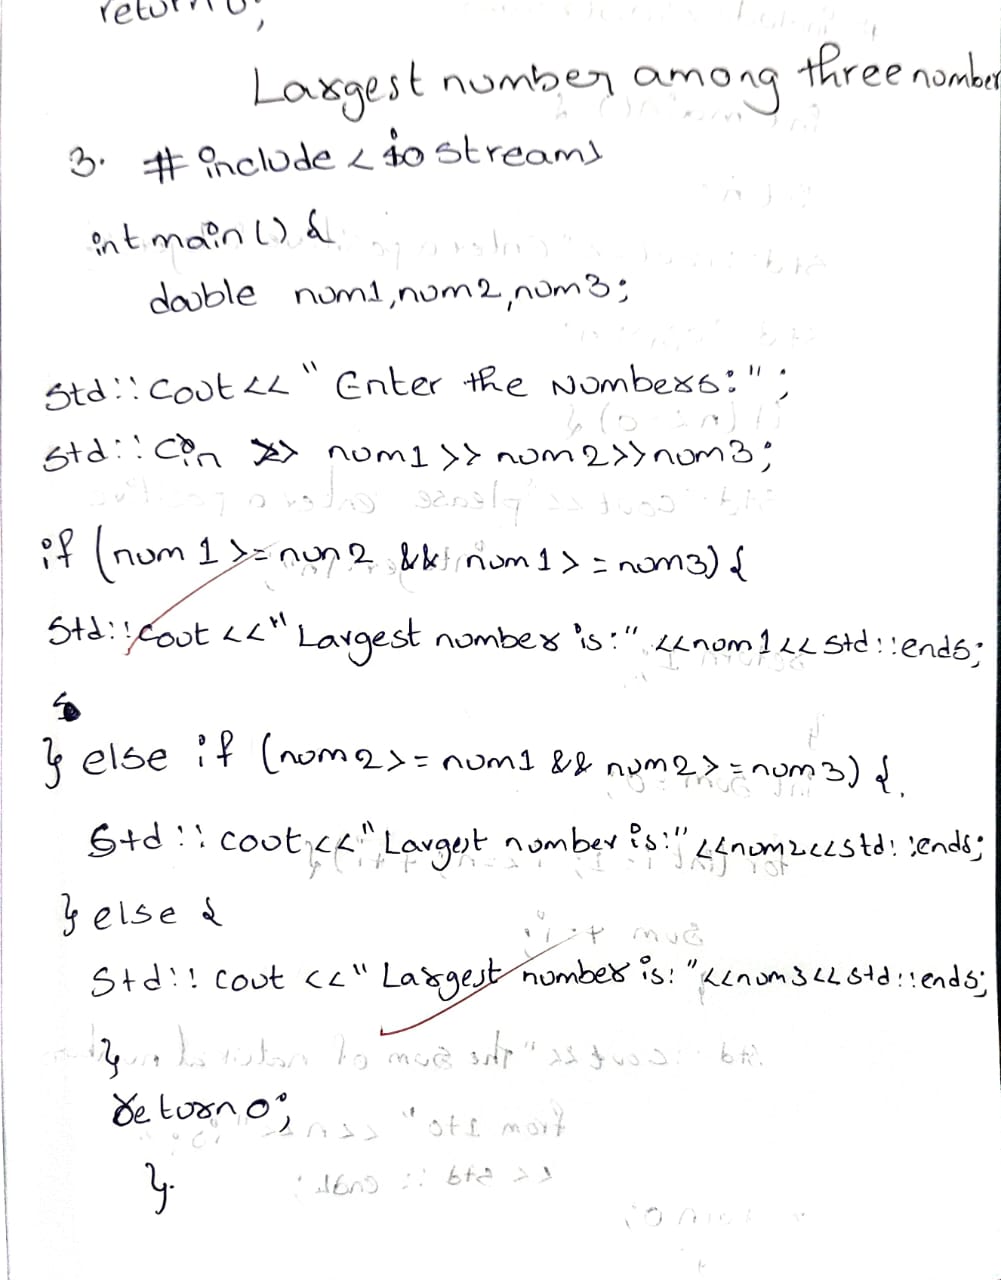 return 0;
Largest number among three number
3. # include < iostream>
int main () {
double num1, num2, num3;
std::cout << " Enter the Numbers:" ;
std::cin >> num1 >> num2 >> num3;
if (num 1 >= num2 && num1 > = num3) {
std::cout <<" Largest number is:" <<num1<< std::ends;
} else if (num2 >= num1 && num2 > = num3) {
std :: cout <<" Largest number is:" <<num2<<std::ends;
} else {
std:: cout <<" Largest number is: "<<num3<< std::ends;
}
return 0;
}